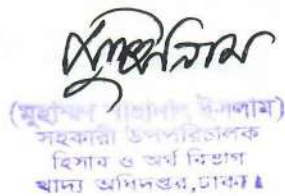 (মুহাম্মদ ইসলাম)
সহকারী উপপরিচালক
হিসাব ও অর্থ বিভাগ
খাদ্য অধিদপ্তর, ঢাকা।